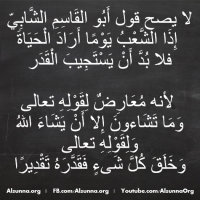 لا يصح قول أَبُو القَاسِمِ الشَّابِيّ
إِذَا الشَّعْبُ يَوْمًا أَرَادَ الْحَيَاةَ
فلا بُدَّ أَنْ يَسْتَجِيبَ الْقَدَر
لأنه مُعَارِضٌ لقَوْلِه تعالى
وَمَا تَشَاءونَ إِلاَّ أَنْ يَشَاءَ اللهُ
وَلِقَوْلِه تعالى
وَخَلَقَ كُلَّ شَىءٍ فَقَدَّرَهُ تَقْدِيرًا
Alsunna.org | FB.com/Alsunna.Org | Youtube.com/AlsunnaOrg